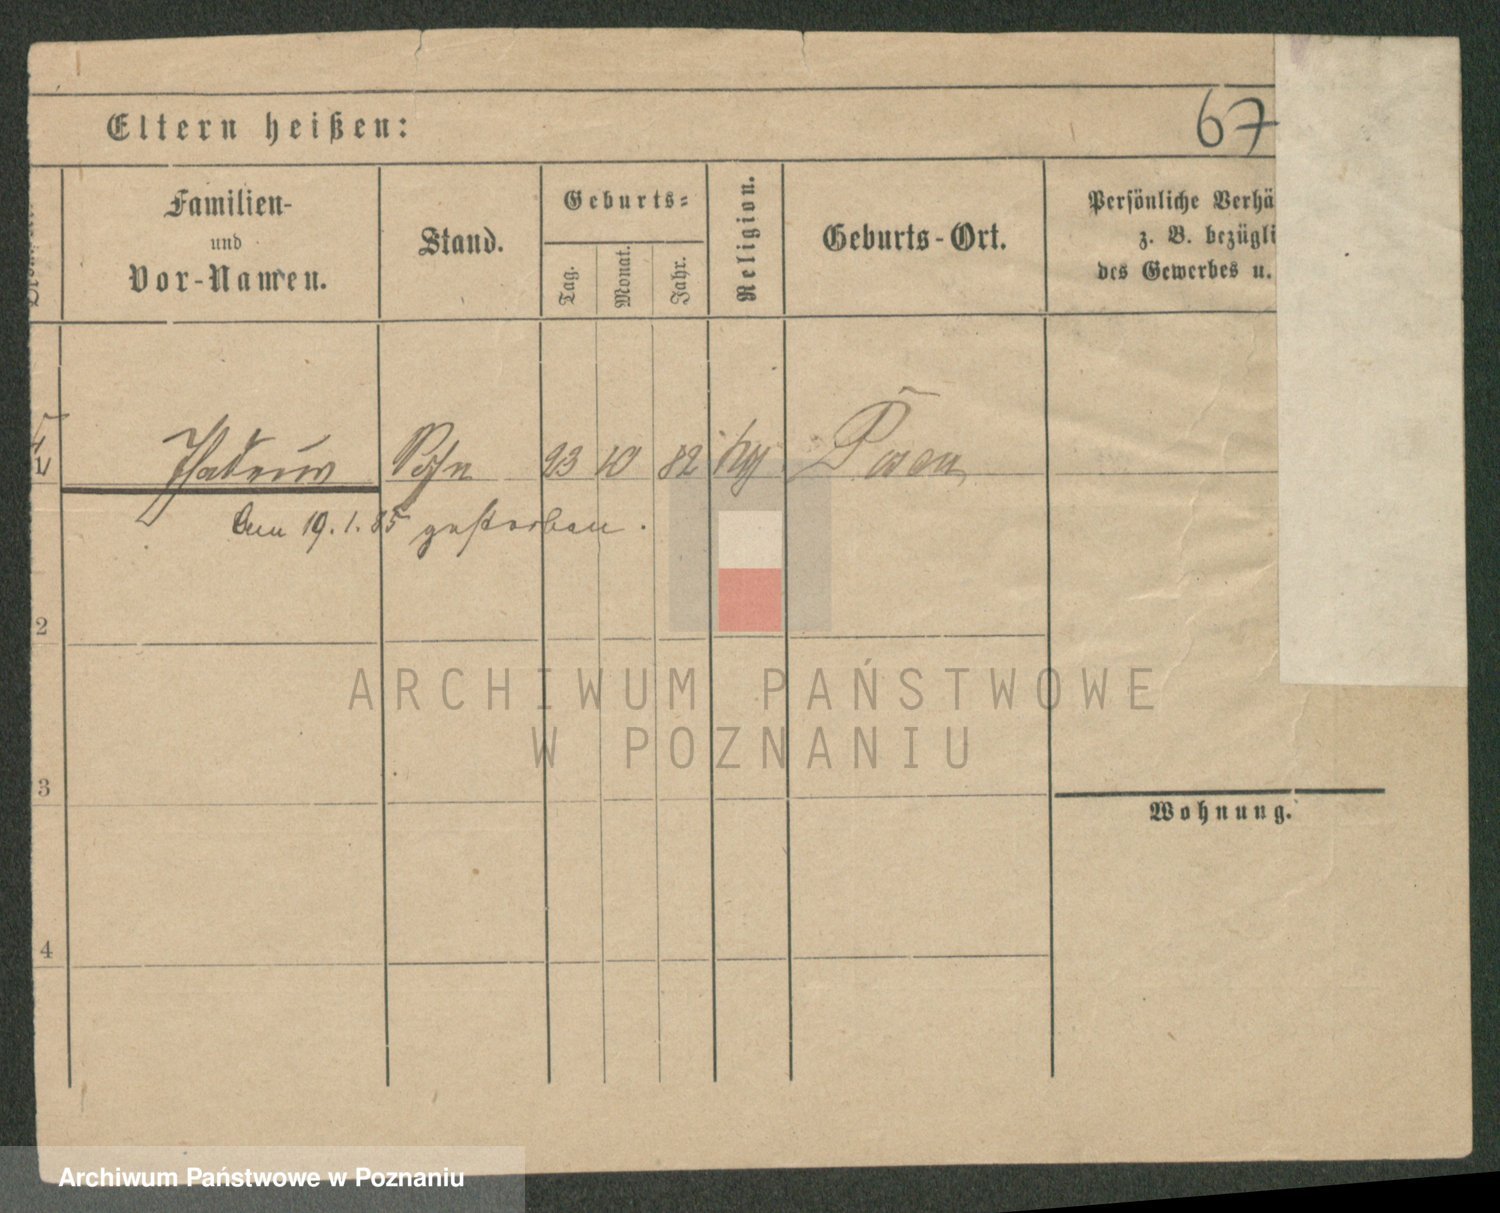 Eltern heißen:
67
Familien-
und
Vor-Namen.
Stand.
Geburts-
Tag.
Monat.
Jahr.
Religion.
Geburts-Ort.
Persönliche Verhä
z. B. bezügli
des Gewerbes u.
Sohn 23 10 82 Posen
Am 19.1.85 gestorben.
2
3
4
Wohnung.
ARCHIWUM PAŃSTWOWE
W POZNANIU
Archiwum Państwowe w Poznaniu